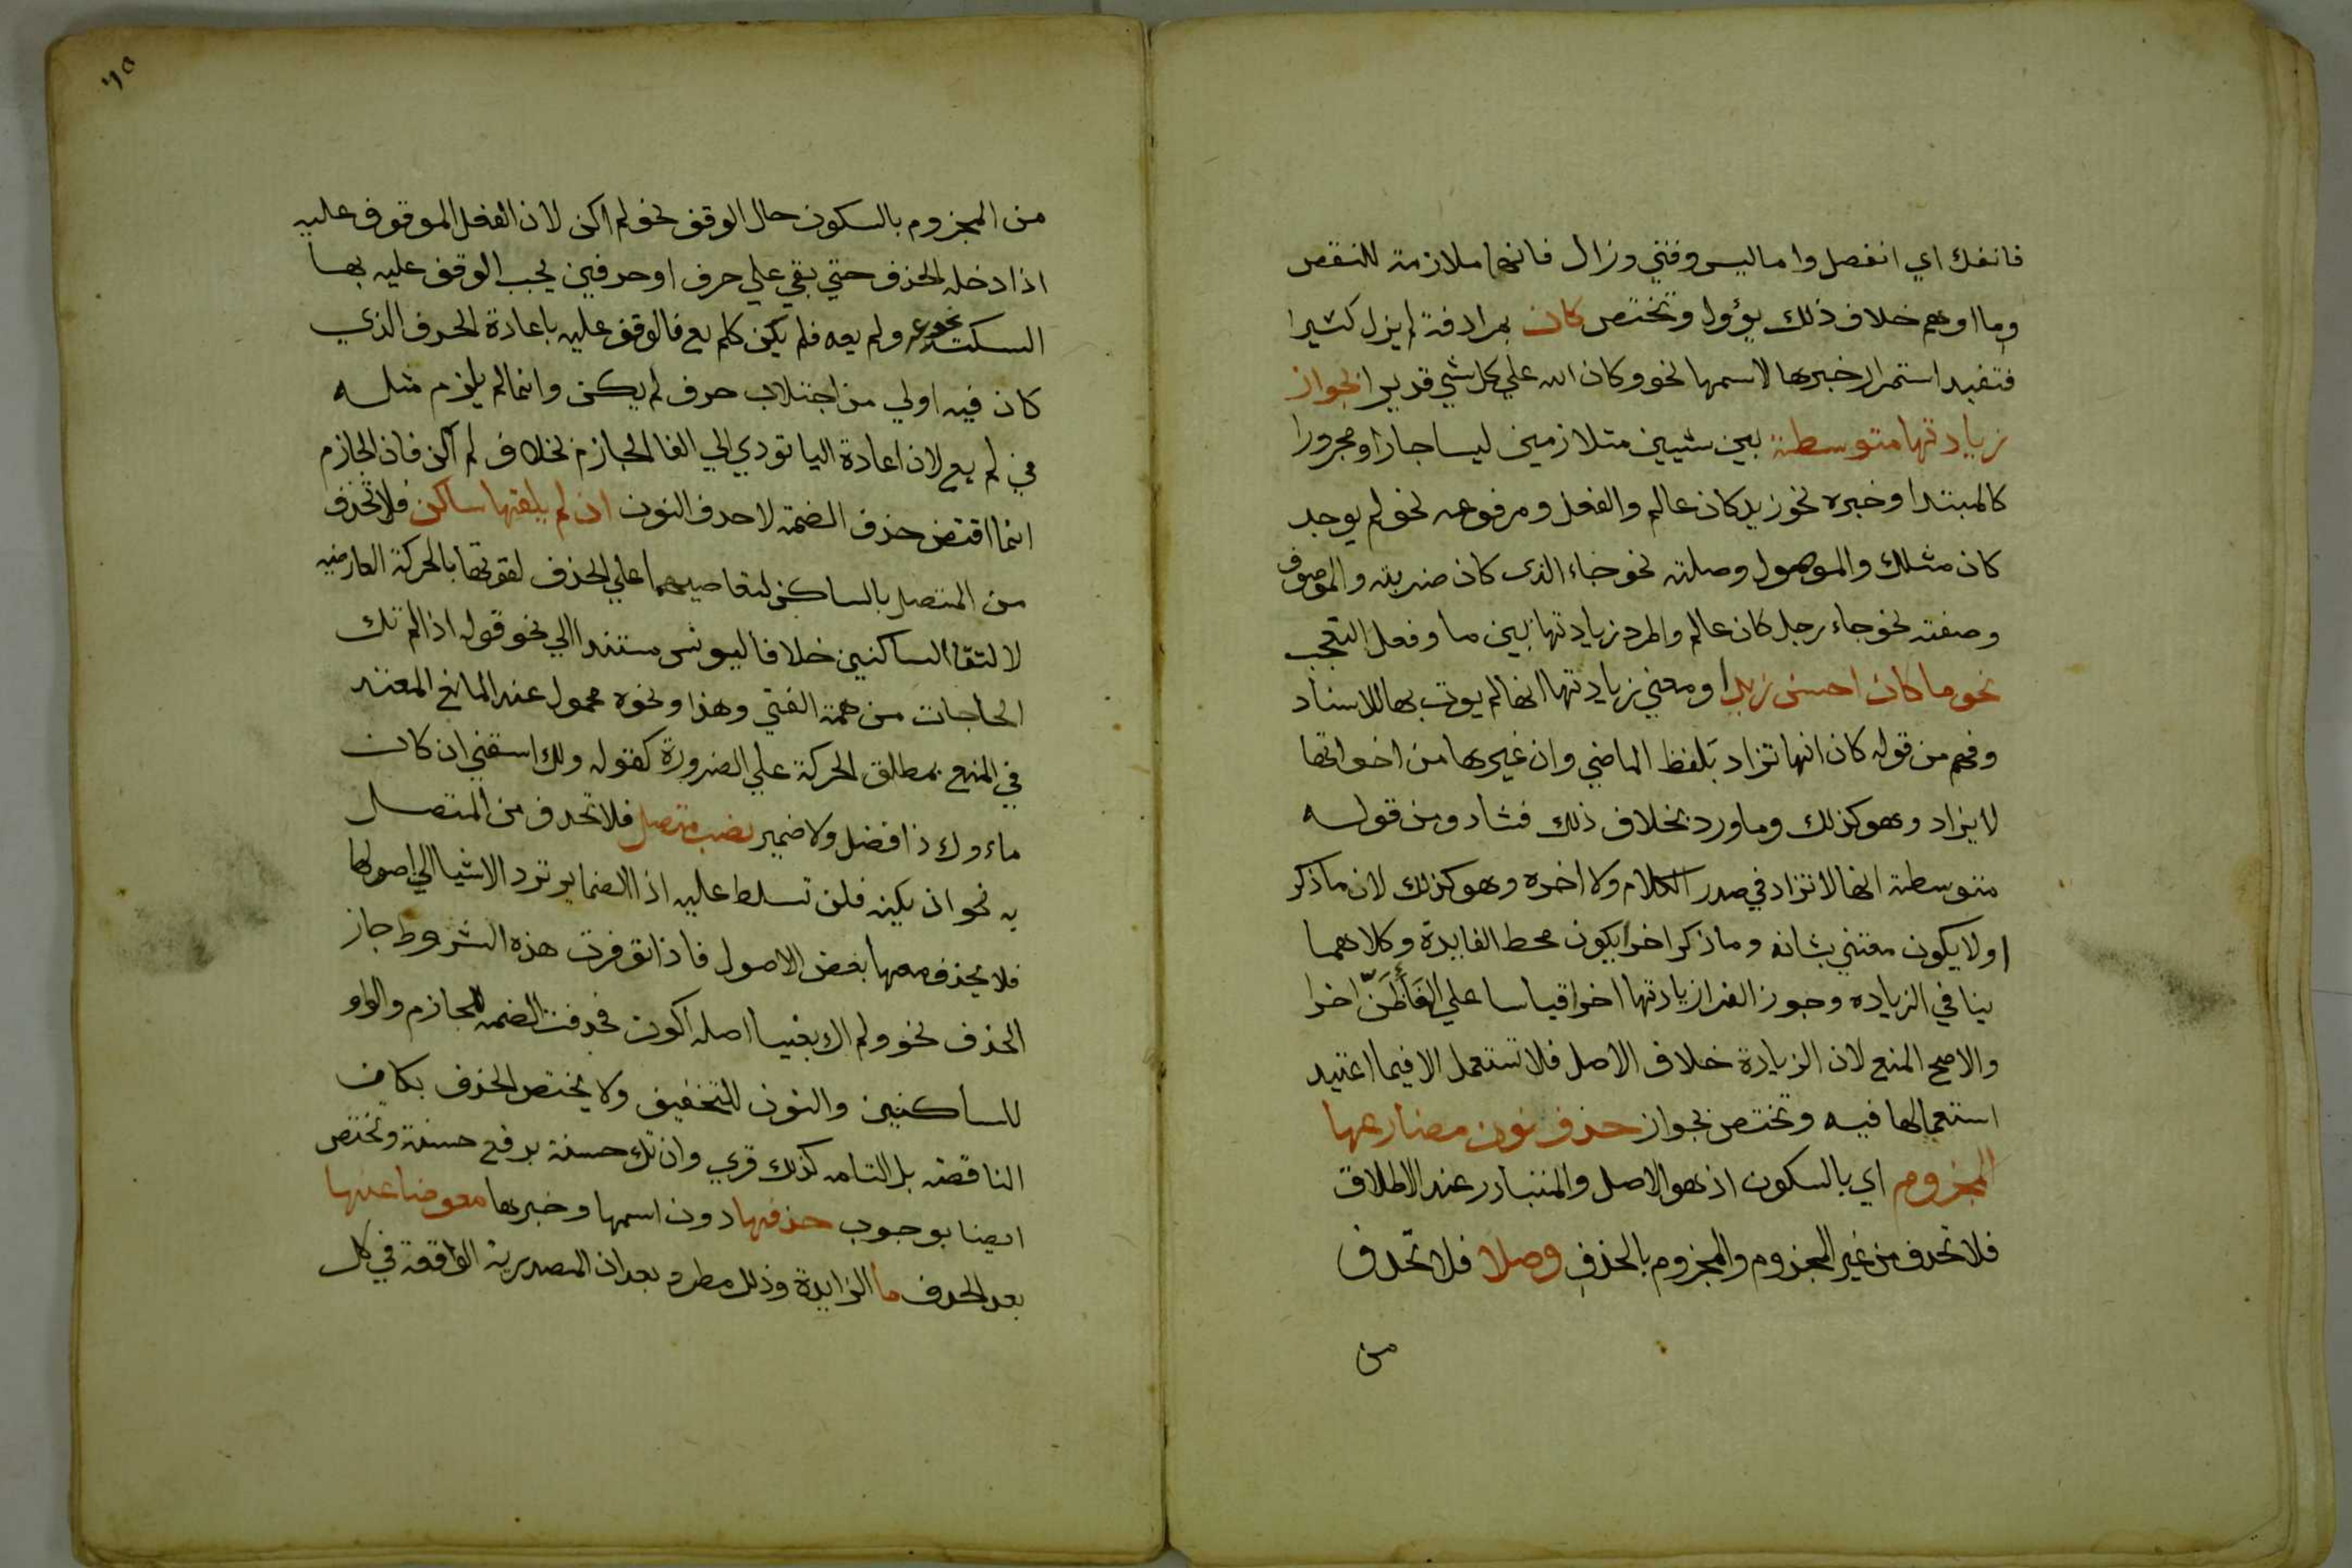 فانفك اي انفصل واما ليس وفتي وزال فانها ملازمة للنقص
وما اوهم خلاف ذلك يؤول وتختص كان بمرادفة لم يزل كثيرا
فتفيد استمرار خبرها لاسمها نحو وكان الله علي كل شي قديرا بجواز
زيادتها متوسطة بين شيين متلازمين ليسا جارا ومجرورا
كالمبتدا وخبره نحو زيد كان عالم والفعل ومرفوعه نحو لم يوجد
كان مثلك والموصول وصلته نحو جاء الذي كان ضربته والموصوف
وصفته نحو جاء رجل كان عالم والمرد زيادتها بين ما وفعل التعجب
نحو ما كان احسن زيدا ومعني زيادتها انها لم يوت بها للاسناد
وفهم من قوله كان انها تزاد بلفظ الماضي وان غيرها من اخواتها
لا يزاد وهو كذلك وما ورد بخلاف ذلك فشاد ومن قوله
متوسطة انها لا تزاد في صدر الكلام ولا اخره وهو كذلك لان ما ذكر
اولا يكون معتني بشانه وما ذكر اخرا يكون محط الفايدة وكلاهما
ينافي الزياده وجوز الفرا زيادتها اخرا قياسا علي الغاظنّ اخرا
والاصح المنع لان الزيادة خلاف الاصل فلا تستعمل الا فيما اعتيد
استعمالها فيه وتختص بجواز حذف نون مضارعها
المجزوم اي بالسكون اذ هو الاصل والمتبادر عند الاطلاق
فلا تحدف من غير المجزوم والمجزوم بالحذف وصلا فلا تحدف
من
٦٥
من المجزوم بالسكون حال الوقف نحو لم اكن لان الفعل الموقوف عليه
اذا دخله الحذف حتي بقي علي حرف او حرفين يجب الوقف عليه بها
السكت نحو عه ولم يعه فلم يكن كلم يع فالوقف عليه باعادة الحرف الذي
كان فيه اولي من اجتلاب حرف لم يكن وانما لم يلزم مثله
في لم يع لان اعادة اليا تودي الي الغا الجازم بخلاف لم اكن فان الجازم
انما اقتضي حذف الضمة لا حدف النون ان لم يلقها ساكن فلا تحذف
من المتصل بالساكن لتعاصيهما علي الحذف لقوتها بالحركة العارضيه
لالتقا الساكنين خلافا ليونس مستندا الي نحو قوله اذا لم تك
الحاجات من همة الفتي وهذا ونحوه محمول عند المانع المعتد
في المنع بمطلق الحركة علي الضرورة كقوله ولك اسقني ان كان
ماءوك ذا فضل ولا ضمير نصب متصل فلا تحدف من المتصل
به نحو ان يكنه فلن تسلط عليه اذ الضماير ترد الاشيا الي اصولها
فلا يحذف معها بعض الاصول فاذا توفرت هذه الشروط جاز
الحذف نحو ولم اك بغيا اصله اكون فحدفت الضمه للجازم والواو
للساكنين والنون للتخفيف ولا يختص الحذف بكان
الناقصه بل التامه كذلك قري وان تك حسنة برفع حسنة وتختص
ايضا بوجوب حذفها دون اسمها وخبرها معوضا عنها
بعد الحدف ما الزايدة وذلك مطرد بعد ان المصدرية الواقعة في كل